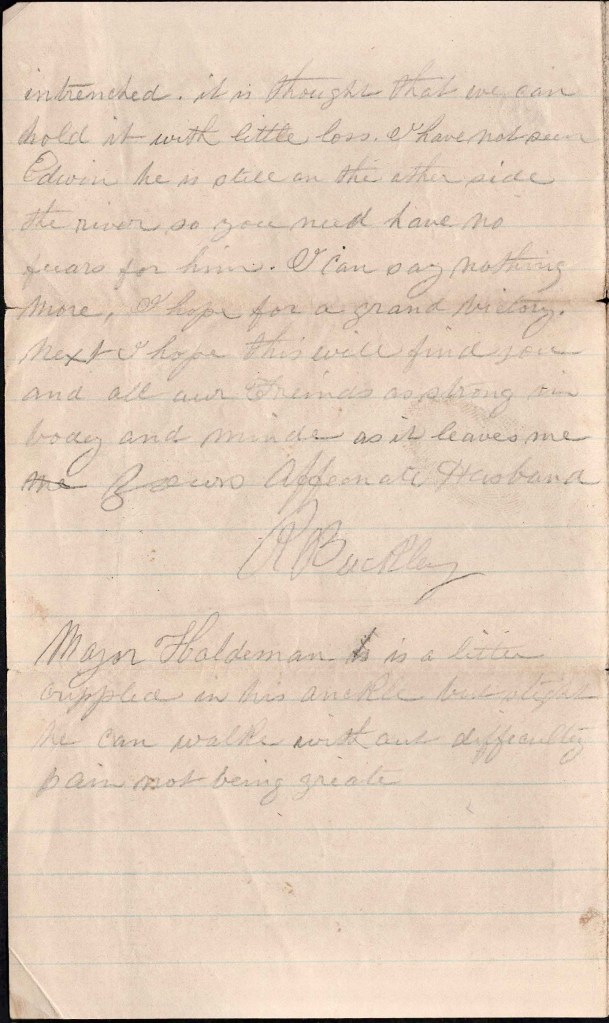 intrenched. it is thought that we can
hold it with little loss. I have not seen
Edwin he is still on the other side
the river so you need have no
fears for him. I can say nothing
more, I hope for a grand victory.
Next I hope this will find you
and all our Freinds as strong in
body and minde as it leaves me
me yours Affeonate Husband
R Buckley
Major Haldeman is is a litter
crippled in his anckle but slight
he can walke with out difficulty
pain not being greate